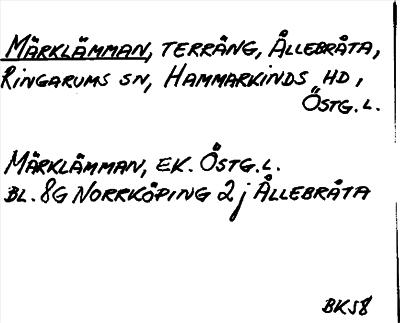 Märklämman, terräng, Ållebråta,
Ringarums sn, Hammarkinds hd,
Östg.l.
Märklämman, ek. Östg.l.
bl. 8G Norrköping 2j Ållebråta
BK58